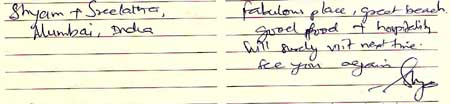 Shyam + Sreelatha,
Mumbai, India
Fabulous place, great beach.
good food + hospitality
Will surely visit next time.
See you again
Shya